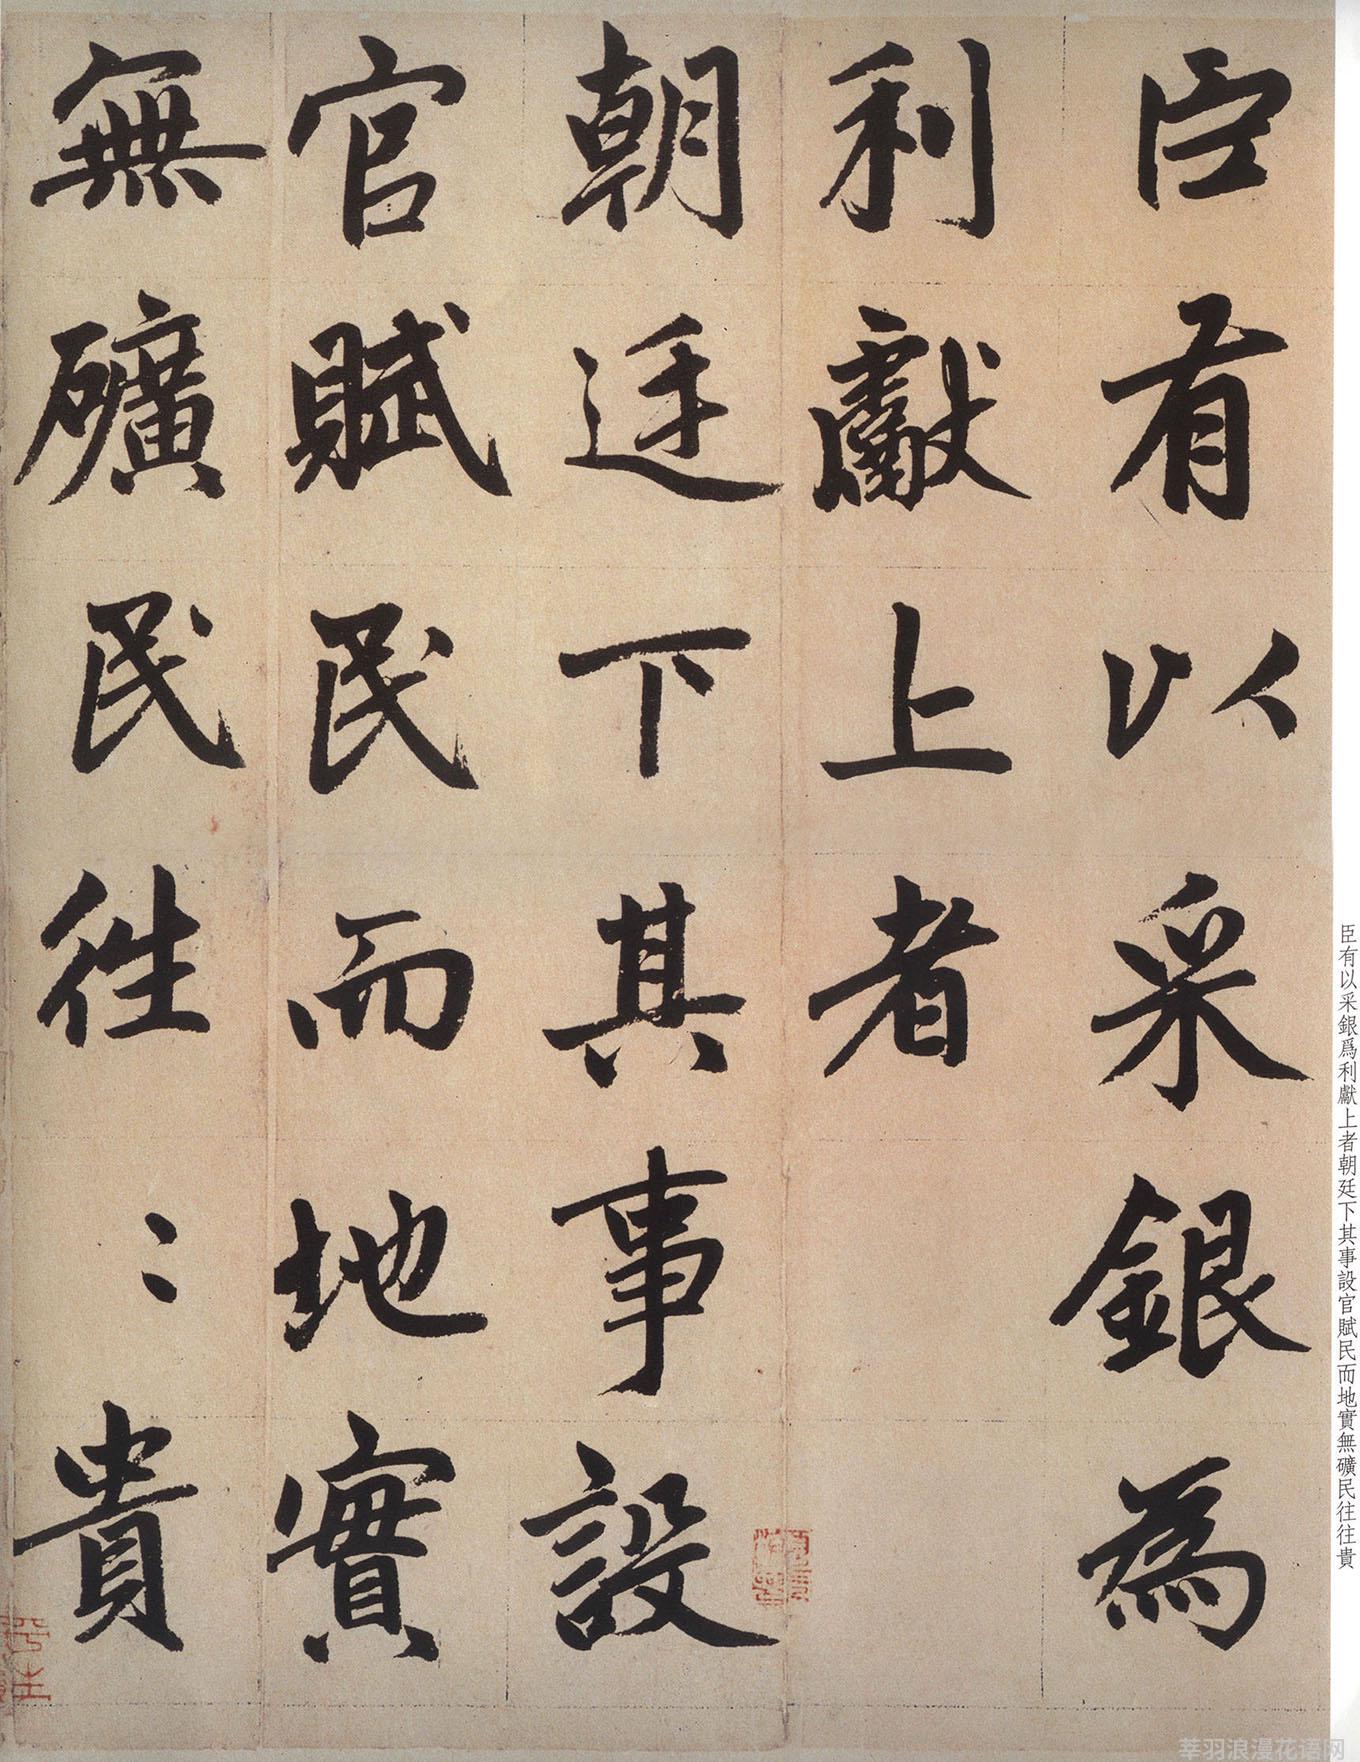 臣有以采銀為
利獻上者
朝廷下其事設
官賦民而地實
無礦民往〻貴
臣有以采銀爲利獻上者朝廷下其事設官賦民而地實無礦民往往貴
莘羽浪漫花语网